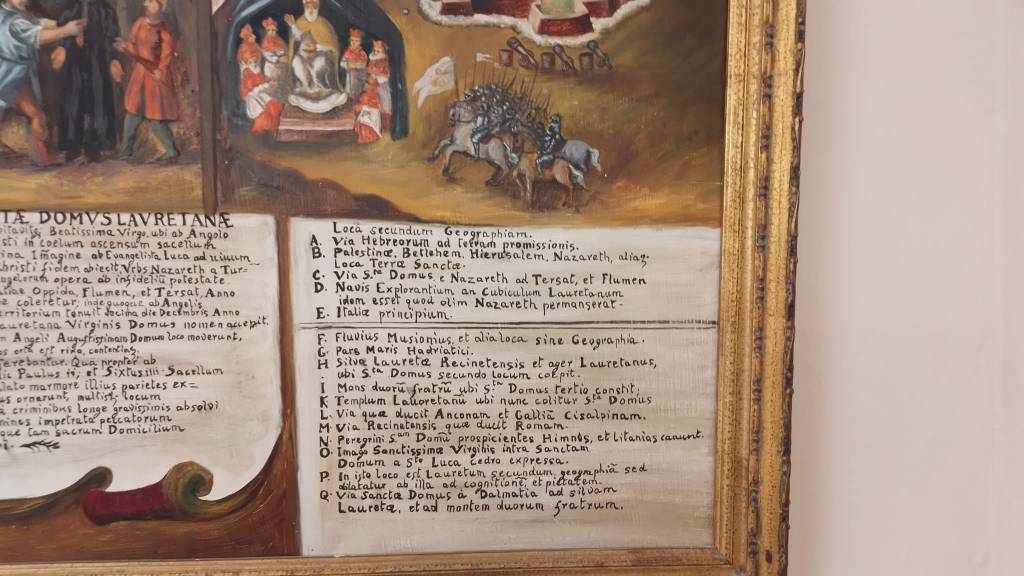 TÆ DOMVS LAVRETANÆ
Beatissima Virgo, ubi ab Angolo
sti in coelum ascensum sacellum
Imagine ab Evangelista Luca ad vivum
Christi fidem abiecit, Vrbs Nazareth a Tur-
ngelorum opera ab infideliū potestate
Oppida, Flumen, et Tersat, Anno
coleretur, inde quoque ab Angelis
territorium tenuit decima die Decembris Anno
auretana Virginis Domus nomen accepit.
Angeli Augustissimam Domum loco moverunt,
orta est rixa, contentius,
ferebantur. Qua propter ab
Paulus II, et Sixtus IIII Sacellum
lato marmore illius parietes ex=
us ornerunt, multisq; locum
criminibus longe gravissimis absolvi
mines impetrata peccatorum
que tam sacrum Domicilium
Loca secundum Geographiam.
A. Via Hebreorum ad terram promissionis.
B. Palestinæ, Betlehem, Hierusalem, Nazareth, aliaq;
Loca Terræ Sanctæ.
C. Via S.tæ Domus e Nazareth ad Tersat, et Flumen
D. Navis Explorantium an Cubiculum Lauretanum
idem esset quod olim Nazareth permanserat
E. Italiæ principium.
F. Fluvius Musionius, et alia loca sine Geographia.
G. Pars Maris Hadriatici.
H Silva Lauretæ Recinetensis et ager Lauretanus,
ubi S.ta Domus secundo locum coepit.
I Mons duorū fratrū ubi S.ta Domus tertio constit.
K Templum Lauoretanū ubi nunc colitur S.ta Domus
L. Via quæ ducit Anconam et Galliā Cisalpinam.
M Via Recinetensis quæ ducit Romam.
N Peregrini S.am Domū prospicientes Himnos, et Litanias canunt.
O. Imago Sanctissimæ Virginis intra Sanctam
Domum a S.to Luca cedro expressa.
P. In isto loco est Lauretum secundum geographiā sed
dilatatur ab illa ad cognitionē, et pietatem
Q. Via Sanctæ Domus à Dalmatia ad silvam
Lauretæ, et ad montem duorum fratrum.